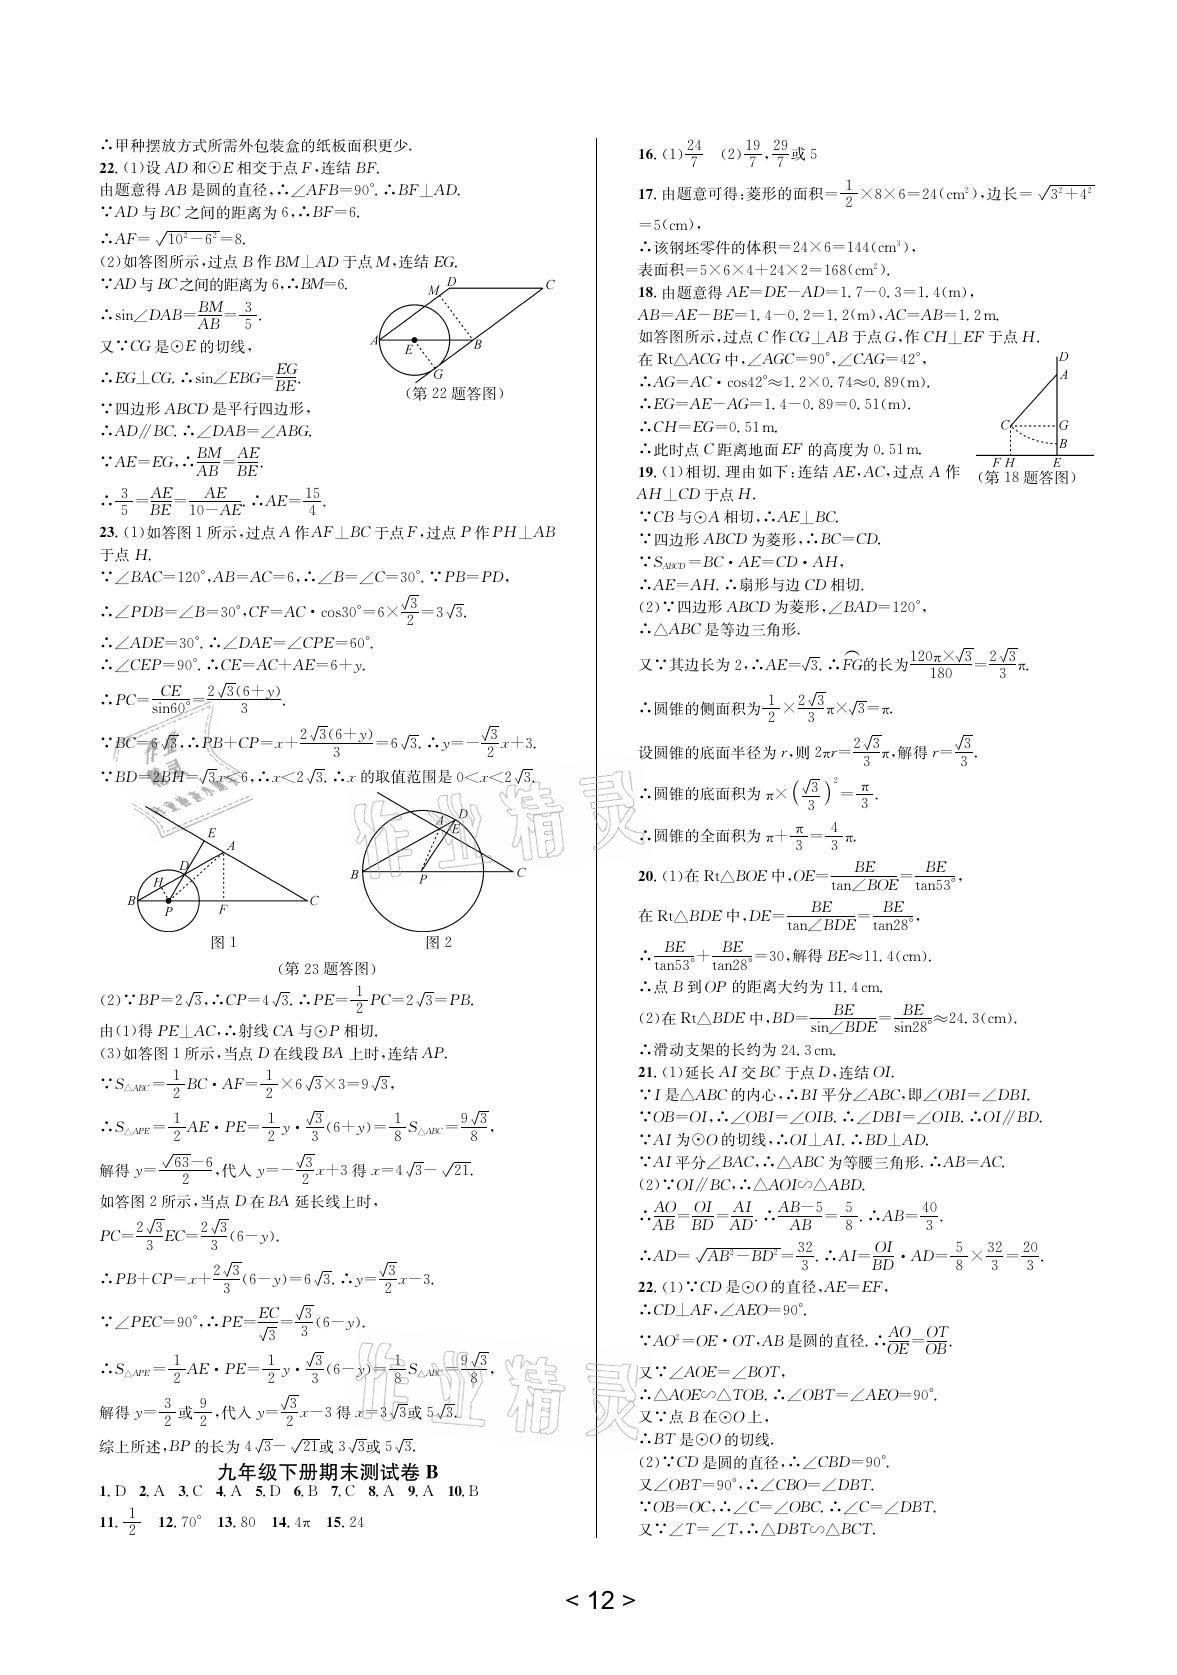 ∴甲种摆放方式所需外包装盒的纸板面积更少.
22. (1)设 AD 和⊙E 相交于点 F,连结 BF.
由题意得 AB 是圆的直径,∴∠AFB=90°. ∴BF⊥AD.
∵AD 与 BC 之间的距离为 6,∴BF=6.
∴AF=√(10²−6²)=8.
(2)如答图所示,过点 B 作 BM⊥AD 于点 M,连结 EG.
∵AD 与 BC 之间的距离为 6,∴BM=6.
∴sin∠DAB=BM/AB=3/5.
又∵CG 是⊙E 的切线,
∴EG⊥CG. ∴sin∠EBG=EG/BE.
∵四边形 ABCD 是平行四边形,
∴AD∥BC. ∴∠DAB=∠ABG.
∵AE=EG,∴BM/AB=AE/BE.
∴3/5=AE/BE=AE/(10−AE). ∴AE=15/4.
M D C
A E B
G
(第 22 题答图)
23. (1)如答图 1 所示,过点 A 作 AF⊥BC 于点 F,过点 P 作 PH⊥AB
于点 H.
∵∠BAC=120°,AB=AC=6,∴∠B=∠C=30°. ∵PB=PD,
∴∠PDB=∠B=30°,CF=AC·cos30°=6×√3/2=3√3.
∴∠ADE=30°. ∴∠DAE=∠CPE=60°.
∴∠CEP=90°. ∴CE=AC+AE=6+y.
∴PC=CE/sin60°=2√3(6+y)/3.
∵BC=6√3,∴PB+CP=x+2√3(6+y)/3=6√3. ∴y=−√3/2x+3.
∵BD=2BH=√3x<6,∴x<2√3. ∴x 的取值范围是 0<x<2√3.
E A D H B P F C
图 1
A D E B P C
图 2
(第 23 题答图)
(2)∵BP=2√3,∴CP=4√3. ∴PE=1/2PC=2√3=PB.
由(1)得 PE⊥AC,∴射线 CA 与⊙P 相切.
(3)如答图 1 所示,当点 D 在线段 BA 上时,连结 AP.
∵S△ABC=1/2BC·AF=1/2×6√3×3=9√3,
∴S△APE=1/2AE·PE=1/2y·√3/3(6+y)=1/8S△ABC=9√3/8,
解得 y=(√63−6)/2,代入 y=−√3/2x+3 得 x=4√3−√21.
如答图 2 所示,当点 D 在 BA 延长线上时,
PC=2√3/3EC=2√3/3(6−y).
∴PB+CP=x+2√3/3(6−y)=6√3. ∴y=√3/2x−3.
∵∠PEC=90°,∴PE=EC/√3=√3/3(6−y).
∴S△APE=1/2AE·PE=1/2y·√3/3(6−y)=1/8S△ABC=9√3/8,
解得 y=3/2或9/2,代入 y=√3/2x−3 得 x=3√3或 5√3.
综上所述,BP 的长为 4√3−√21或 3√3或 5√3.
九年级下册期末测试卷 B
1. D 2. A 3. C 4. A 5. D 6. B 7. C 8. A 9. A 10. B
11. 1/2 12. 70° 13. 80 14. 4π 15. 24
16. (1)24/7 (2)19/7,29/7或 5
17. 由题意可得:菱形的面积=1/2×8×6=24(cm²),边长=√(3²+4²)
=5(cm),
∴该钢坯零件的体积=24×6=144(cm³),
表面积=5×6×4+24×2=168(cm²).
18. 由题意得 AE=DE−AD=1.7−0.3=1.4(m),
AB=AE−BE=1.4−0.2=1.2(m),AC=AB=1.2m.
如答图所示,过点 C 作 CG⊥AB 于点 G,作 CH⊥EF 于点 H.
在 Rt△ACG 中,∠AGC=90°,∠CAG=42°,
∴AG=AC·cos42°≈1.2×0.74≈0.89(m).
∴EG=AE−AG=1.4−0.89=0.51(m).
∴CH=EG=0.51m.
∴此时点 C 距离地面 EF 的高度为 0.51m.
D
A
C G
B
F H E
(第 18 题答图)
19. (1)相切. 理由如下:连结 AE,AC,过点 A 作
AH⊥CD 于点 H.
∵CB 与⊙A 相切,∴AE⊥BC.
∵四边形 ABCD 为菱形,∴BC=CD.
∵S_ABCD=BC·AE=CD·AH,
∴AE=AH. ∴扇形与边 CD 相切.
(2)∵四边形 ABCD 为菱形,∠BAD=120°,
∴△ABC 是等边三角形.
又∵其边长为 2,∴AE=√3. ∴F͡G的长为120π×√3/180=2√3/3π.
∴圆锥的侧面积为1/2×2√3/3π×√3=π.
设圆锥的底面半径为 r,则 2πr=2√3/3π,解得 r=√3/3.
∴圆锥的底面积为 π×(√3/3)²=π/3.
∴圆锥的全面积为 π+π/3=4/3π.
20. (1)在 Rt△BOE 中,OE=BE/tan∠BOE=BE/tan53°,
在 Rt△BDE 中,DE=BE/tan∠BDE=BE/tan28°,
∴BE/tan53°+BE/tan28°=30,解得 BE≈11.4(cm).
∴点 B 到 OP 的距离大约为 11.4cm.
(2)在 Rt△BDE 中,BD=BE/sin∠BDE=BE/sin28°≈24.3(cm).
∴滑动支架的长约为 24.3cm.
21. (1)延长 AI 交 BC 于点 D,连结 OI.
∵I 是△ABC 的内心,∴BI 平分∠ABC,即∠OBI=∠DBI.
∵OB=OI,∴∠OBI=∠OIB. ∴∠DBI=∠OIB. ∴OI∥BD.
∵AI 为⊙O 的切线,∴OI⊥AI. ∴BD⊥AD.
∵AI 平分∠BAC,∴△ABC 为等腰三角形. ∴AB=AC.
(2)∵OI∥BC,∴△AOI∽△ABD.
∴AO/AB=OI/BD=AI/AD. ∴(AB−5)/AB=5/8. ∴AB=40/3.
∴AD=√(AB²−BD²)=32/3. ∴AI=OI/BD·AD=5/8×32/3=20/3.
22. (1)∵CD 是⊙O 的直径,AE=EF,
∴CD⊥AF,∠AEO=90°.
∵AO²=OE·OT,AB 是圆的直径. ∴AO/OE=OT/OB.
又∵∠AOE=∠BOT,
∴△AOE∽△TOB. ∴∠OBT=∠AEO=90°.
又∵点 B 在⊙O 上,
∴BT 是⊙O 的切线.
(2)∵CD 是圆的直径,∴∠CBD=90°.
又∠OBT=90°,∴∠CBO=∠DBT.
∵OB=OC,∴∠C=∠OBC. ∴∠C=∠DBT.
又∵∠T=∠T,∴△DBT∽△BCT.
作业精灵
<12>